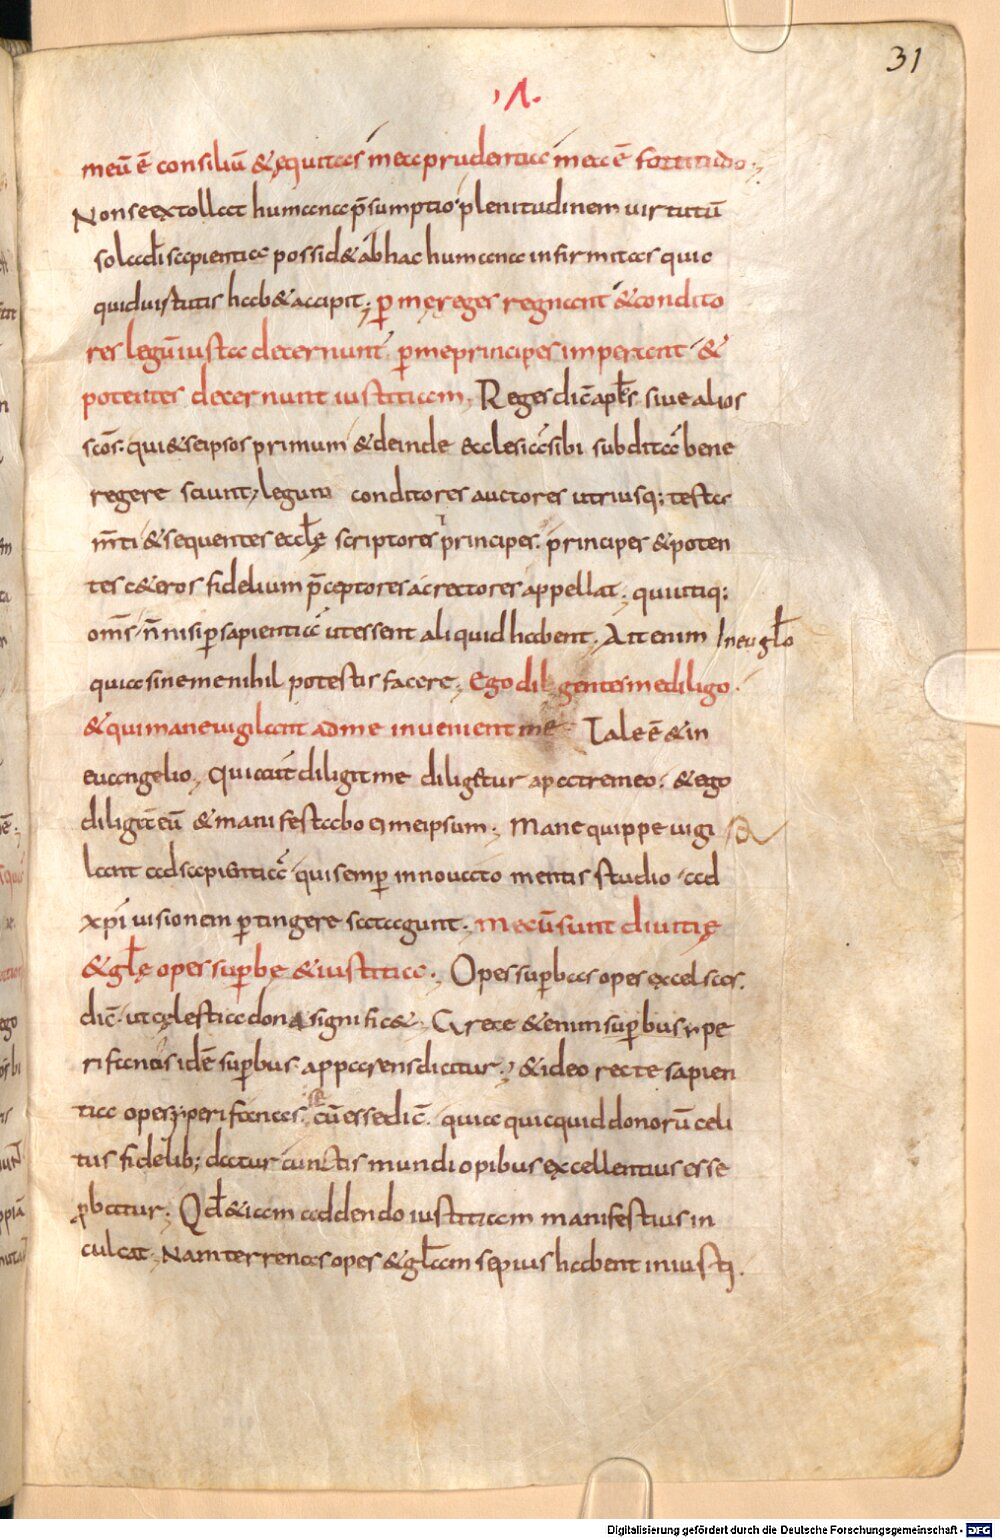 31
·Λ·
meū ē consiliū & ęquitas mea prudentia mea ē fortitudo;
Non se extollat humana p̄sumptio plenitudinem uirtutū
sola dī sapientia possid& ab hac humana infirmitas quic
quid uirtutis hab& accipit; p̱ me reges regnant & condito
res legū iusta decernunt p̱ me principes imperant &
potentes decernunt iustitiam; Reges dic̄ aposƚs siue alios
sc̄os· qui & seipsos primum & deinde ecclesiā sibi subditā bene
regere sciunt; legum conditores auctores utriusq; testa
m̄ti & sequentes eccƚę scriptores principes. principes & poten
tes c&eros fidelium p̄ceptores ac rectores appellat; qui utiq;
om̄s n̄ nisi p̱ sapientiā ut essent aliquid habent. Ait enim In euglo
quia sine me nihil potestis facere; Ego diligentes me diligo.
& qui mane uigilant ad me inuenient me Tale ē & in
euangelio; Qui autē diligit me diligetur a patre meo. & ego
diligā eū & manifestabo ei meipsum; Mane quippe uigi
lant ad sapientiā qui semp̱ innouato mentis studio ad
xp̄i uisionem p̱tingere satagunt. Mecū sunt diuitię
& gƚę opes sup̱bę & iustitia; Opes sup̱bas opes excelsas.
dic̄· ut cęlestia dona signific&; Grece & enim sup̱bus ype
rifanos idē sup̱bus apparens dicitur; & ideo recte sapien
tia opes yperifanas. secū esse dic̄. quia quicquid donorū celi
tus fidelib; datur cunctis mundi opibus excellentius esse
p̱batur; Qđ & iam addendo iustitiam manifestius in
culcat; Nam terrenas opes & gƚam sepius habent iniusti.
Digitalisierung gefördert durch die Deutsche Forschungsgemeinschaft - DFG